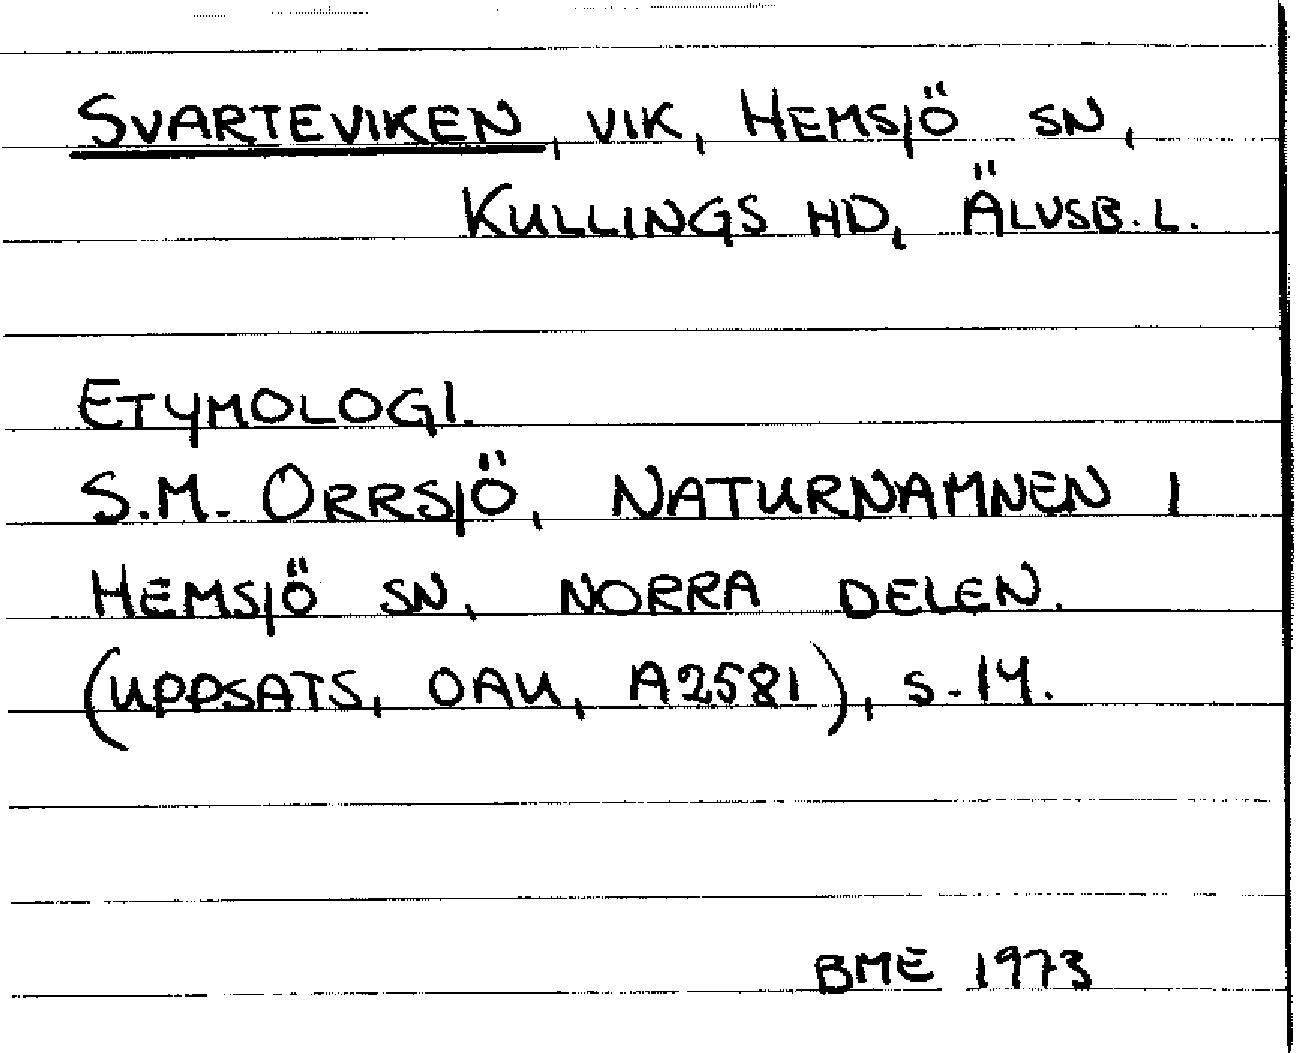 SVARTEVIKEN, VIK, HEMSJÖ SN,
KULLINGS HD, ÄLVSB. L.
ETYMOLOGI.
S.M. ORRSJÖ, NATURNAMNEN I
HEMSJÖ SN, NORRA DELEN.
(UPPSATS, OAU, A2581), S. 14.
BME 1973